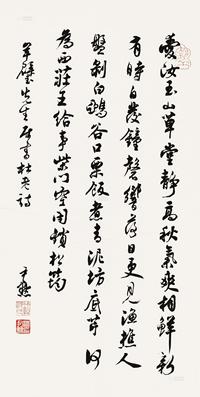 愛汝玉山草堂靜高秋氣爽相鮮新
有時自發鐘磬響落日更見漁樵人
盤剝白鴉谷口栗飯煮青泥坊底芹何
為西莊王給事柴門空閉鎖松筠
璧先生屬書杜老詩